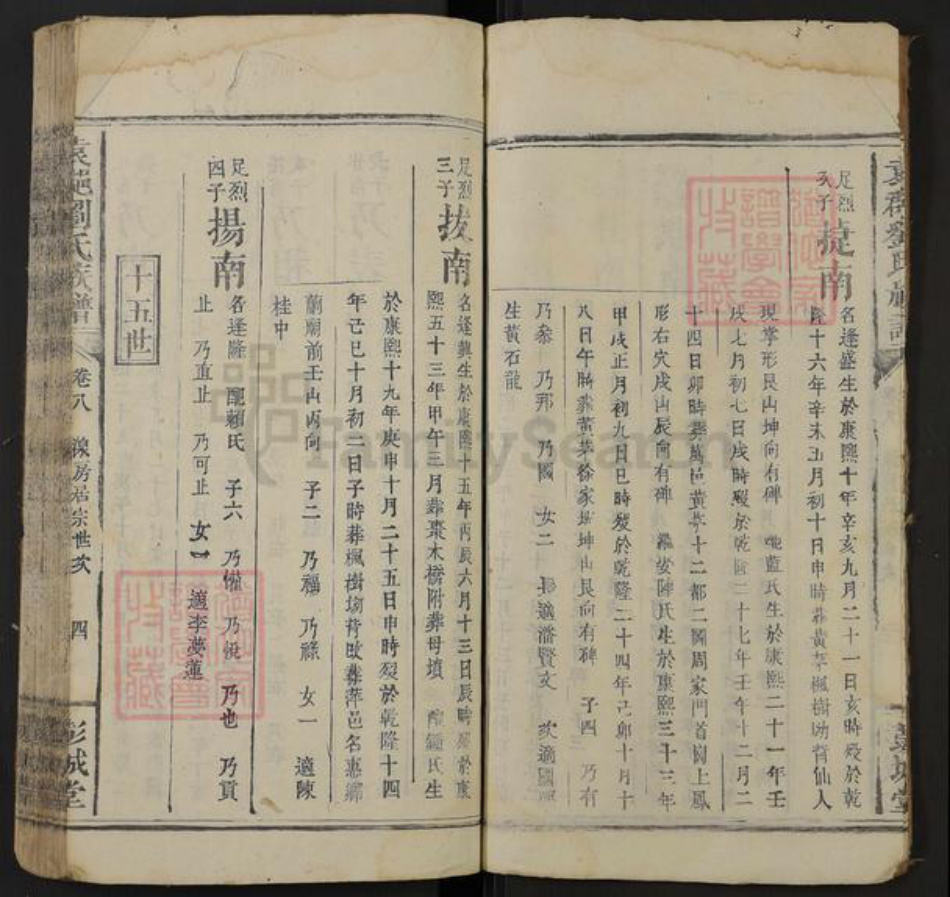 足烈
次子
捷南
名逢盛生於康熙十年辛亥九月二十一日亥時歿於乾
隆十六年辛未五月初十日申時葬黃茅楓樹坳背仙人
現掌形艮山坤向有碑 藍氏生於康熙二十一年壬
戌七月初七日戌時歿於乾隆二十七年壬午十二月二
十四日卯時葬萬邑黃茅十二都二圖周家門首園上鳳
形右穴戌山辰向有碑 陳氏生於康熙三十三年
甲戌正月初九日巳時歿於乾隆二十四年己卯十月十
八日午時葬黃茅徐家坤山艮向有碑 子四 乃有
乃叅 乃邦 乃國 女二 長適潘賢文 次適國
生黃石龍
足烈
三子
拔南
名逢興生於康熙十五年丙辰六月十三日辰時歿於康
熙五十三年甲午三月葬棗木橋附葬母墳 配鍾氏生
於康熙十九年庚申十月二十五日申時歿於乾隆十四
年己巳十月初二日子時葬楓樹坳背改葬萍邑名惠鄉
蘭廟前壬山丙向 子二 乃福 乃祿 女一 適陳
桂中
足烈
四子
揚南
名逢隆 配賴氏 子六 乃備 乃悅 乃也 乃貢
止 乃直止 乃可止 女一 適李夢蓮
十五世
袁邑劉氏族譜 卷八 房居宗世次 四 彭城堂
FamilySearch